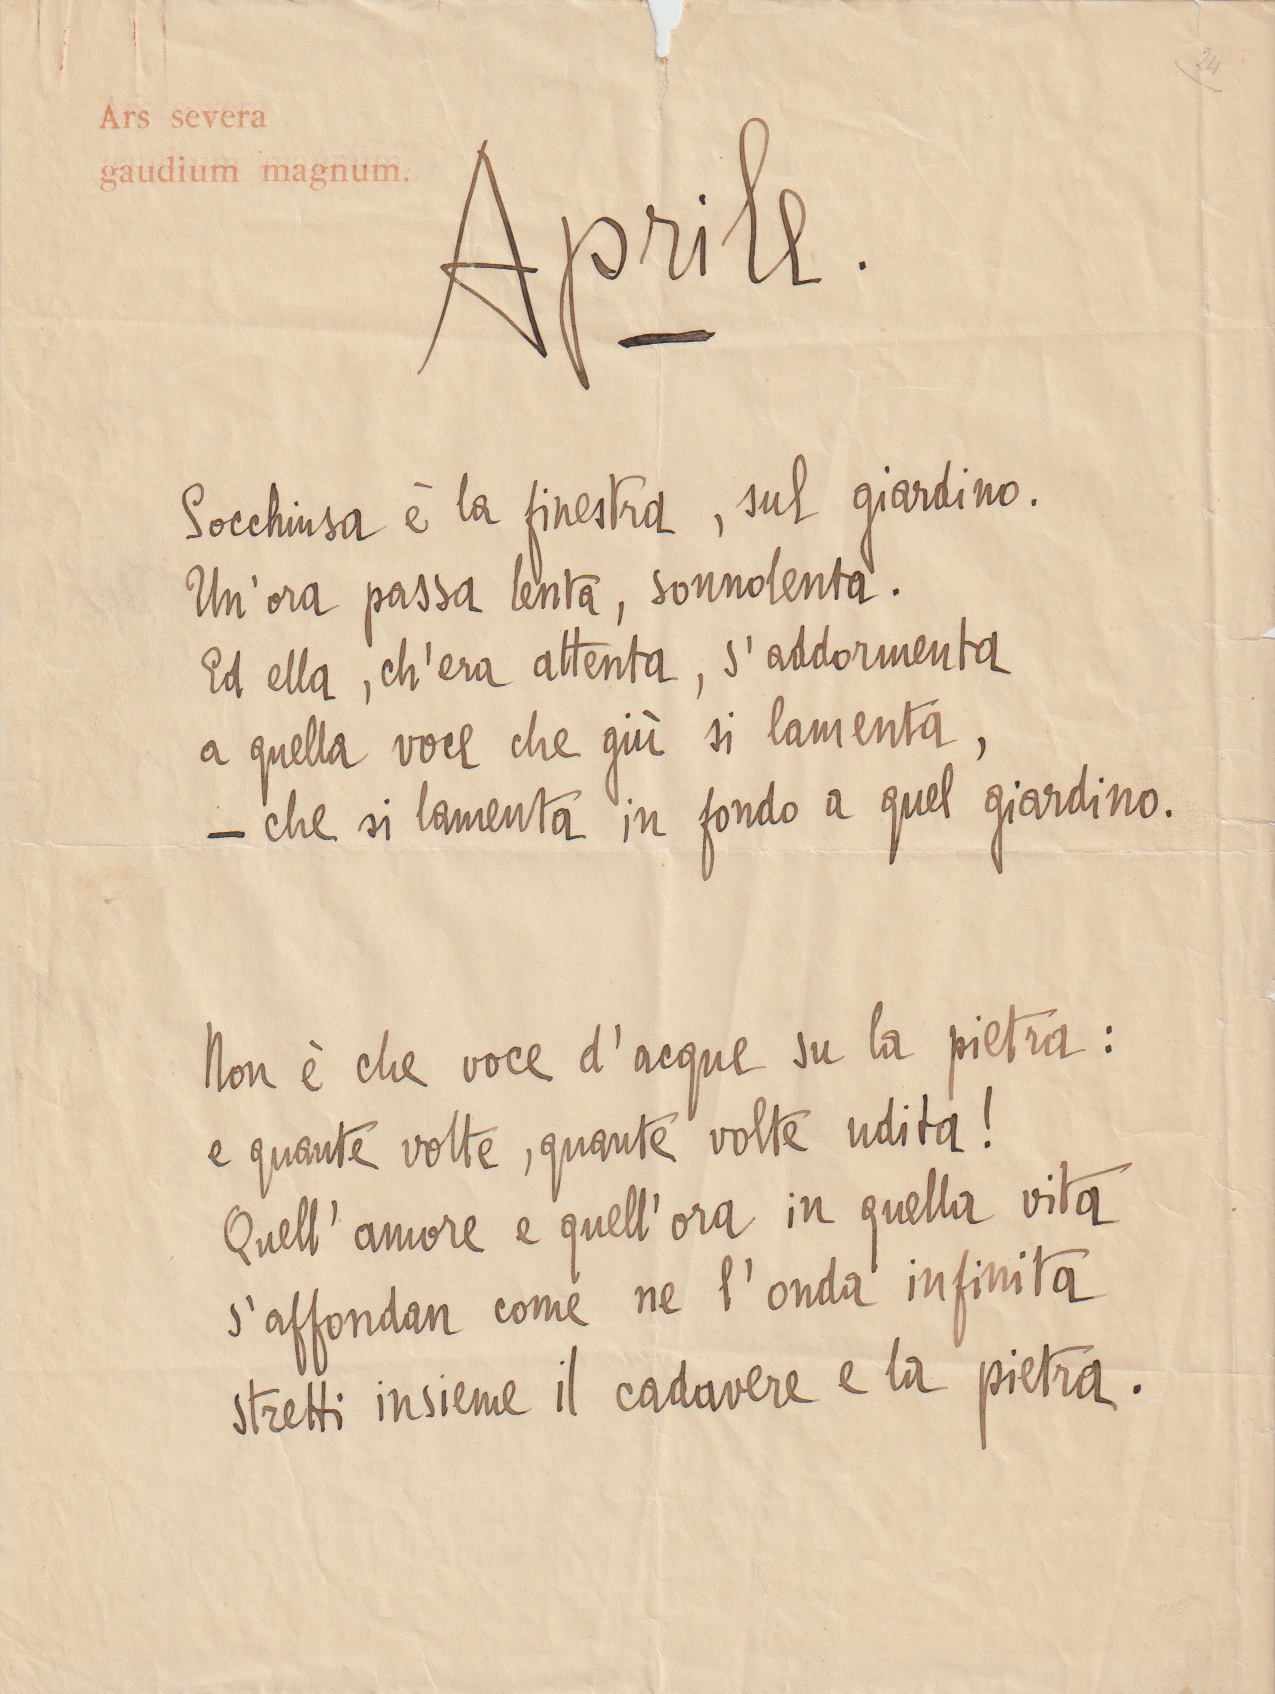 24
Ars severa
gaudium magnum.
Aprile.
Socchiusa è la finestra, sul giardino.
Un'ora passa lenta, sonnolenta.
Ed ella, ch'era attenta, s'addormenta
a quella voce che giù si lamenta,
— che si lamenta in fondo a quel giardino.
Non è che voce d'acque su la pietra:
e quante volte, quante volte udita!
Quell'amore e quell'ora in quella vita
s'affondan come ne l'onda infinita
stretti insieme il cadavere e la pietra.